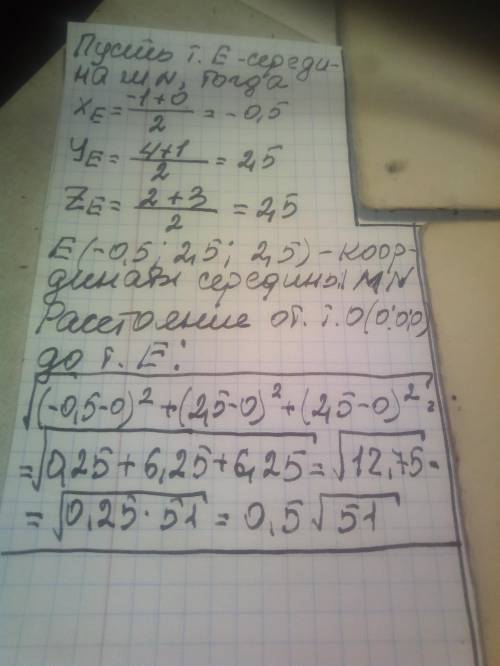 Пусть т. Е-середи-
на MN, тогда
XE = -1+0/2 = -0,5
YE = 4+1/2 = 2,5
ZE = 2+3/2 = 2,5
E(-0,5; 2,5; 2,5) - коор-
динаты середины MN
Расстояние от т. О(0;0;0)
до т. Е:
√(-0,5-0)²+(2,5-0)²+(2,5-0)² =
=√0,25+6,25+6,25 = √12,75 =
=√0,25·51 = 0,5√51